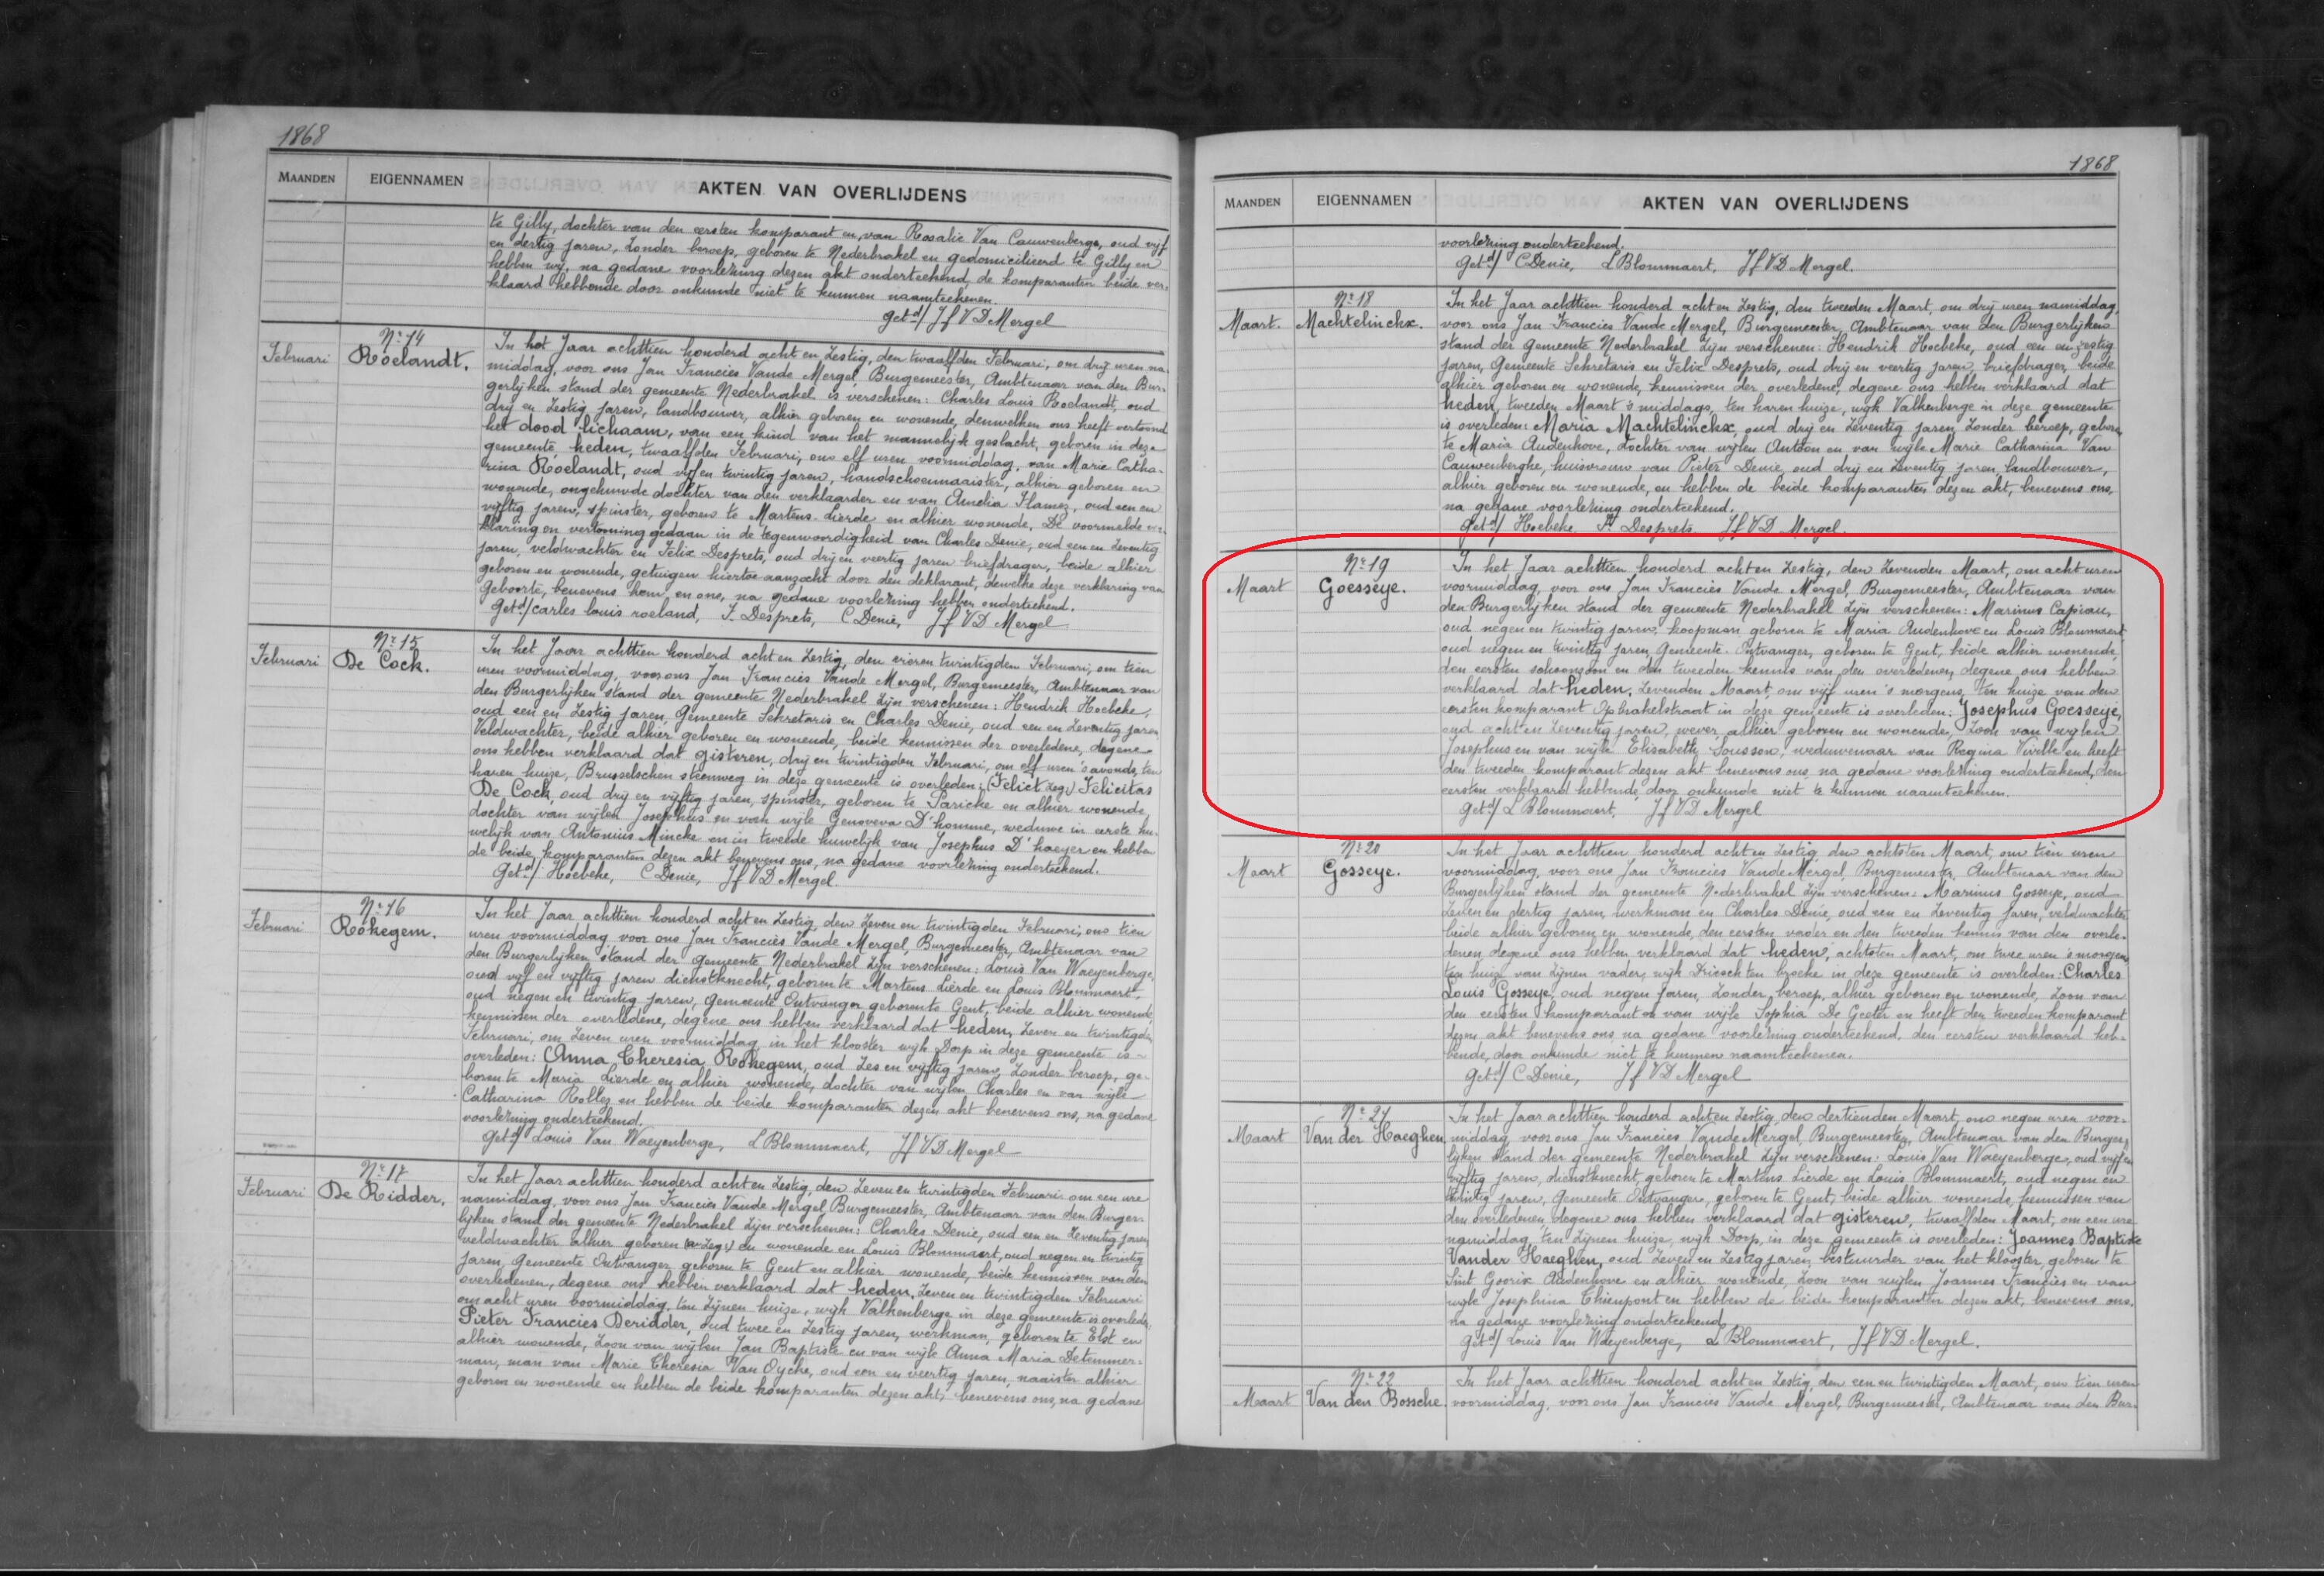 1868
MAANDEN EIGENNAMEN AKTEN VAN OVERLIJDENS
te Gilly, dochter van den eersten komparant en van Rosalie Van Cauwenberge, oud vijf
en dertig jaren, zonder beroep, geboren te Nederbrakel en gedomicilieerd te Gilly en
hebben wij, na gedane voorlezing dezen akt onderteekend, de komparanten beide ver=
klaard hebbende door onkunde niet te kunnen naamteekenen.
Getd/ Jf VD Mergel
Nr 14
Februari Roelandt.
In het Jaar achttien honderd acht en zestig, den twaalfden Februari, om drij uren na
middag, voor ons Jan Francies Vande Mergel, Burgemeester, Ambtenaar van den Bur=
gerlijken stand der gemeente Nederbrakel is verschenen: Charles Louis Roelandt, oud
drij en zestig jaren, landbouwer, alhier geboren en wonende, denwelken ons heeft vertoond
het dood lichaam, van een kind van het mannelijk geslacht, geboren in deze
gemeente, heden, twaalfden Februari, om elf uren voormiddag, van Marie Catha=
rina Roelandt, oud vijf en twintig jaren, handschoennaaister, alhier geboren en
wonende, ongehuwde dochter van den verklaarder en van Amelia Flamez, oud een en
vijftig jaren, spinster, geboren te Martens-Lierde en alhier wonende. De voormelde ver=
klaring en vertooning gedaan in de tegenwoordigheid van Charles Denie, oud een en zeventig
jaren, veldwachter en Felix Desprets, oud drij en veertig jaren briefdrager, beide alhier
geboren en wonende, getuigen hiertoe aanzocht door den deklarant, dewelke deze verklaring van
Geboorte, benevens hem en ons, na gedane voorlezing hebben onderteekend.
Getd/ carles louis roeland, F. Desprets, C Denie, Jf VD Mergel
Nr 15
Februari De Cock.
In het Jaar achttien honderd acht en zestig, den vieren twintigden Februari, om tien
uren voormiddag, voor ons Jan Francies Vande Mergel, Burgemeester, Ambtenaar van
den Burgerlijken stand der gemeente Nederbrakel zijn verschenen: Hendrik Hoebeke,
oud een en zestig jaren, Gemeente Sekretaris en Charles Denie, oud een en zeventig jaren
Veldwachter, beide alhier geboren en wonende, beide kennissen der overledene, degene
ons hebben verklaard dat gisteren, drij en twintigden Februari, om elf uren 's avonds, ten
haren huize, Brusselschen steenweg in deze gemeente is overleden: (Felict zegs) Felicitas
De Cock, oud drij en vijftig jaren, spinster, geboren te Paricke en alhier wonende
dochter van wijlen Josephus en van wijle Genoveva D'homme, weduwe in eerste hu=
welijk van Antonius Mincke en in tweede huwelijk van Josephus D'haeyer en hebben
de beide komparanten dezen akt benevens ons, na gedane voorlezing onderteekend.
Getd/ Hoebeke, C Denie, Jf VD Mergel.
Nr 16
Februari Rokegem.
In het Jaar achttien honderd acht en zestig, den zeven en twintigden Februari, om tien
uren voormiddag voor ons Jan Francies Vande Mergel, Burgemeester, Ambtenaar van
den Burgerlijken stand der gemeente Nederbrakel zijn verschenen: Louis Van Waeyenberge,
oud vijf en vijftig jaren dienstknecht, geboren te Martens Lierde en Louis Blommaert,
oud negen en twintig jaren, Gemeente Ontvanger geboren te Gent, beide alhier wonende,
kennissen der overledene, degene ons hebben verklaard dat heden, zeven en twintigden
Februari, om zeven uren voormiddag, in het klooster wijk Dorp in deze gemeente is
overleden: Anna Theresia Rokegem, oud zes en vijftig jaren, zonder beroep, ge=
boren te Maria Lierde en alhier wonende, dochter van wijlen Charles en van wijle
Catharina Rollez en hebben de beide komparanten dezen akt benevens ons, na gedane
voorlezing onderteekend.
Getd/ Louis Van Waeyenberge, L Blommaert, Jf VD Mergel
Nr 17
Februari De Ridder.
In het Jaar achttien honderd acht en zestig, den zeven en twintigden Februari om een ure
namiddag, voor ons Jan Francies Vande Mergel Burgemeester, Ambtenaar van den Burger=
lijken stand der gemeente Nederbrakel zijn verschenen: Charles Denie, oud een en zeventig jaren
veldwachter alhier geboren en wonende en Louis Blommaert, oud negen en twintig
jaren, Gemeente Ontvanger geboren te Gent en alhier wonende, beide kennissen van den
overledenen, degene ons hebben verklaard dat heden, zeven en twintigden Februari
om acht uren voormiddag, ten zijnen huize, wijk Valkenberge in deze gemeente is overleden
Pieter Francies Deridder, oud twee en zestig jaren, werkman, geboren te Elst en
alhier wonende, zoon van wijlen Jan Baptiste en van wijle Anna Maria Detemmer=
man, man van Marie Theresia Van Oycke, oud een en veertig jaren, naaister alhier
geboren en wonende en hebben de beide komparanten dezen akt, benevens ons, na gedane
1868
MAANDEN EIGENNAMEN AKTEN VAN OVERLIJDENS
voorlezing onderteekend.
Getd/ C Denie, L Blommaert, Jf VD Mergel.
Nr 18
Maart. Machtelinckx.
In het Jaar achttien honderd acht en zestig, den tweeden Maart, om drij uren namiddag,
voor ons Jan Francies Vande Mergel, Burgemeester, Ambtenaar van den Burgerlijken
stand der gemeente Nederbrakel zijn verschenen: Hendrik Hoebeke, oud een en zestig
jaren, Gemeente Sekretaris en Felix Desprets, oud drij en veertig jaren, briefdrager, beide
alhier geboren en wonende, kennissen der overledene, degene ons hebben verklaard dat
heden, tweeden Maart 's middags, ten haren huize, wijk Valkenberge in deze gemeente
is overleden: Maria Machtelinckx, oud drij en zeventig jaren, zonder beroep, geboren
te Maria Audenhove, dochter van wijlen Antoon en van wijle Marie Catharina Van
Cauwenberghe, huisvrouw van Pieter Denie, oud drij en zeventig jaren, landbouwer,
alhier geboren en wonende, en hebben de beide komparanten dezen akt, benevens ons,
na gedane voorlezing onderteekend.
Getd/ Hoebeke F. Desprets. Jf VD Mergel.
Nr 19
Maart Goesseye.
In het Jaar achttien honderd acht en zestig, den zevenden Maart, om acht uren
voormiddag, voor ons Jan Francies Vande Mergel, Burgemeester, Ambtenaar van
den Burgerlijken stand der gemeente Nederbrakel zijn verschenen: Marinus Capiau,
oud negen en twintig jaren, koopman geboren te Maria Audenhove en Louis Blommaert
oud negen en twintig jaren, Gemeente-Ontvanger, geboren te Gent, beide alhier wonende,
den eersten schoonzoon en den tweeden kennis van den overledenen, degene ons hebben
verklaard dat heden, zevenden Maart, om vijf uren 's morgens, ten huize van den
eersten komparant Opbrakelstraat in deze gemeente is overleden: Josephus Goesseye,
oud acht en zeventig jaren, wever, alhier geboren en wonende, zoon van wijlen
Josephus en van wijle Elisabeth Soussou, weduwenaar van Regina Aville en heeft
den tweeden komparant dezen akt benevens ons, na gedane voorlezing onderteekend, den
eersten verklaard hebbende, door onkunde niet te kunnen naamteekenen.
Getd/ L Blommaert, Jf VD Mergel
Nr 20
Maart Gosseye.
In het Jaar achttien honderd acht en zestig, den achtsten Maart, om tien uren
voormiddag, voor ons Jan Francies Vande Mergel, Burgemeester, Ambtenaar van den
Burgerlijken stand der gemeente Nederbrakel zijn verschenen: Marinus Gosseye, oud
zeven en dertig jaren, werkman en Charles Denie, oud een en zeventig jaren, veldwachter
beide alhier geboren en wonende, den eersten vader en den tweeden kennis van den overle=
denen, degene ons hebben verklaard dat heden, achtsten Maart, om twee uren 's morgens
ten huize van zijnen vader, wijk Driesch ten broeke in deze gemeente is overleden: Charles
Louis Gosseye, oud negen jaren, zonder beroep, alhier geboren en wonende, zoon van
den eersten komparant en van wijle Sophia De Geeter en heeft den tweeden komparant
dezen akt benevens ons na gedane voorlezing onderteekend, den eersten verklaard heb=
bende, door onkunde niet te kunnen naamteekenen.
Getd/ C Denie, Jf VD Mergel
Nr 21
Maart Van der Haeghen
In het Jaar achttien honderd acht en zestig, den dertienden Maart, om negen uren voor=
middag, voor ons Jan Francies Vande Mergel, Burgemeester, Ambtenaar van den Burger=
lijken stand der gemeente Nederbrakel zijn verschenen: Louis Van Waeyenberge, oud vijf en
vijftig jaren, dienstknecht, geboren te Martens Lierde en Louis Blommaert, oud negen en
twintig jaren, Gemeente Ontvanger, geboren te Gent, beide alhier wonende, kennissen van
den overledenen, degene ons hebben verklaard dat gisteren, twaalfden Maart, om een ure
namiddag, ten zijnen huize, wijk Dorp, in deze gemeente is overleden: Joannes Baptiste
Vander Haeghen, oud zeven en zestig jaren, bestuurder van het klooster, geboren te
Sint Goorix Audenhove en alhier wonende, zoon van wijlen Joannes Francies en van
wijle Josephina Thienpont en hebben de beide komparanten dezen akt, benevens ons,
na gedane voorlezing onderteekend.
Getd/ Louis Van Waeyenberge, L Blommaert, Jf VD Mergel.
Nr 22
Maart Van den Bossche.
In het Jaar achttien honderd acht en zestig, den een en twintigden Maart, om tien uren
voormiddag, voor ons Jan Francies Vande Mergel, Burgemeester, Ambtenaar van den Bur=